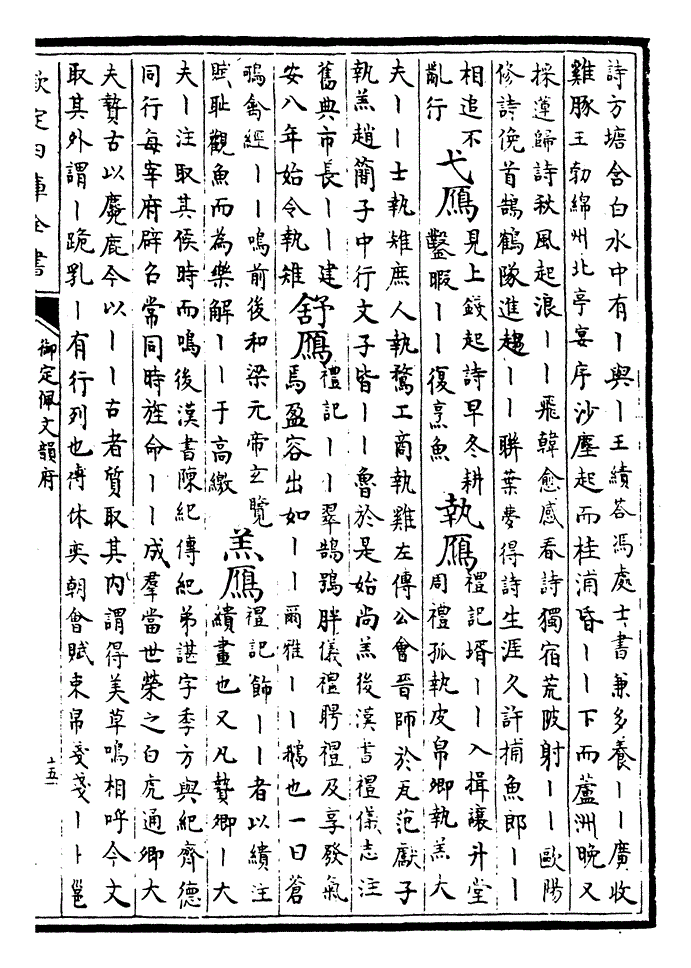 詩方塘含白水中有丨與丨王績答馮處士書兼多養丨丨廣收
雞豚王勃綿州北亭宴序沙塵起而桂浦昏丨丨下而蘆洲晚又
採蓮歸詩秋風起浪丨丨飛韓愈感春詩獨宿荒陂射丨丨歐陽
修詩俛首鵠鶴隊進趨丨丨聯葉夢得詩生涯久許捕魚郎丨丨
相追不
亂行
弋鴈
見上錢起詩早冬耕
鑿暇丨丨復烹魚
執鴈
禮記壻丨丨入揖讓升堂
周禮孤執皮帛卿執羔大
夫丨丨士執雉庶人執鶩工商執雞左傳公會晉師於瓦范獻子
執羔趙簡子中行文子皆丨丨魯於是始尚羔後漢書禮儀志注
舊典市長丨丨建
安八年始令執雉
舒鴈
禮記丨丨翠鵠鴞胖儀禮聘禮及享發氣
焉盈容出如丨丨爾雅丨丨鵝也一曰蒼
鳴禽經丨丨鳴前後和梁元帝玄覽
賦耻觀魚而為樂解丨丨于高繳
羔鴈
禮記飾丨丨者以繢注
繢畫也又凡贄卿丨大
夫丨注取其候時而鳴後漢書陳紀傳紀弟諶字季方與紀齊德
同行每宰府辟召常同時旌命丨丨成羣當世榮之白虎通卿大
夫贄古以麑鹿今以丨丨古者質取其内謂得美草鳴相呼今文
取其外謂丨跪乳丨有行列也傅休奕朝會賦束帛戔戔丨丨邕
欽定四庫全書
御定佩文韻府